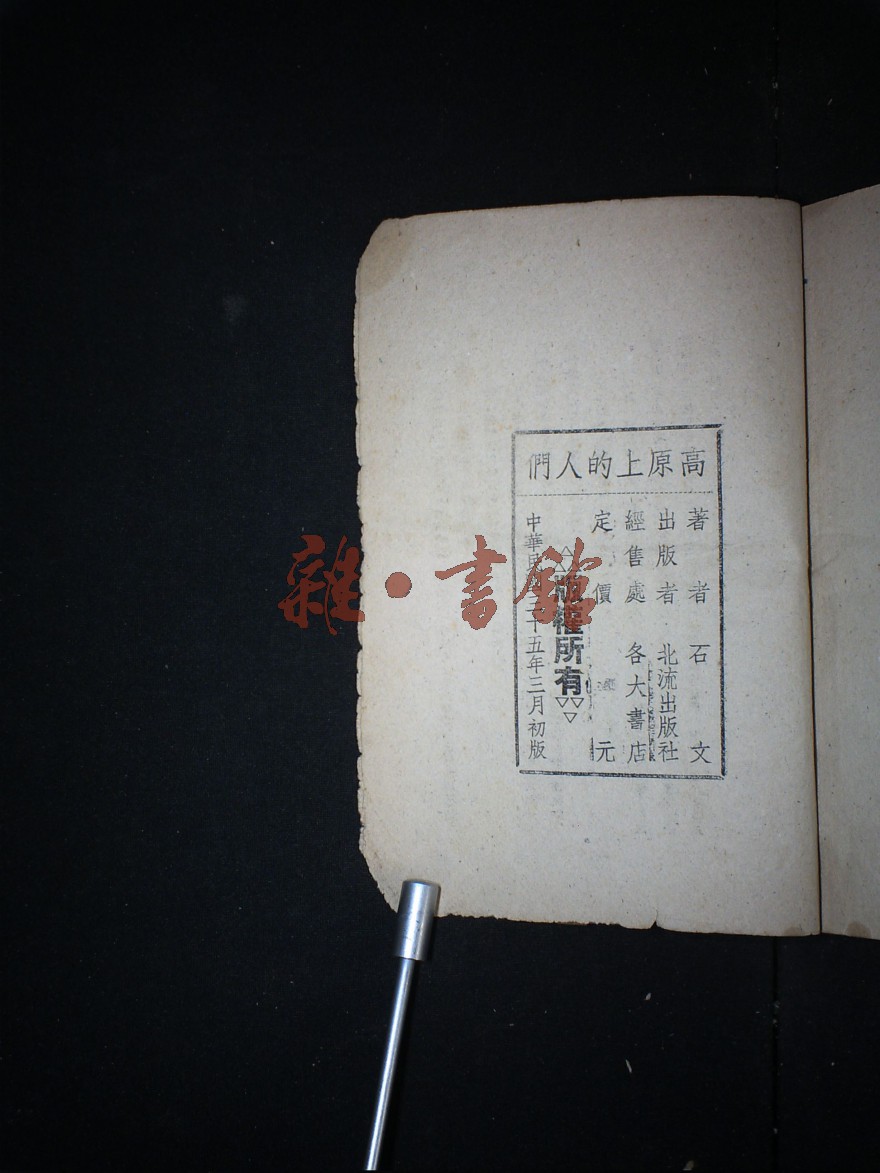 高原上的人們
著者 石文
出版者 北流出版社
經售處 各大書店
定價 元
版權所有
中華民國三十五年三月初版
雜·書館